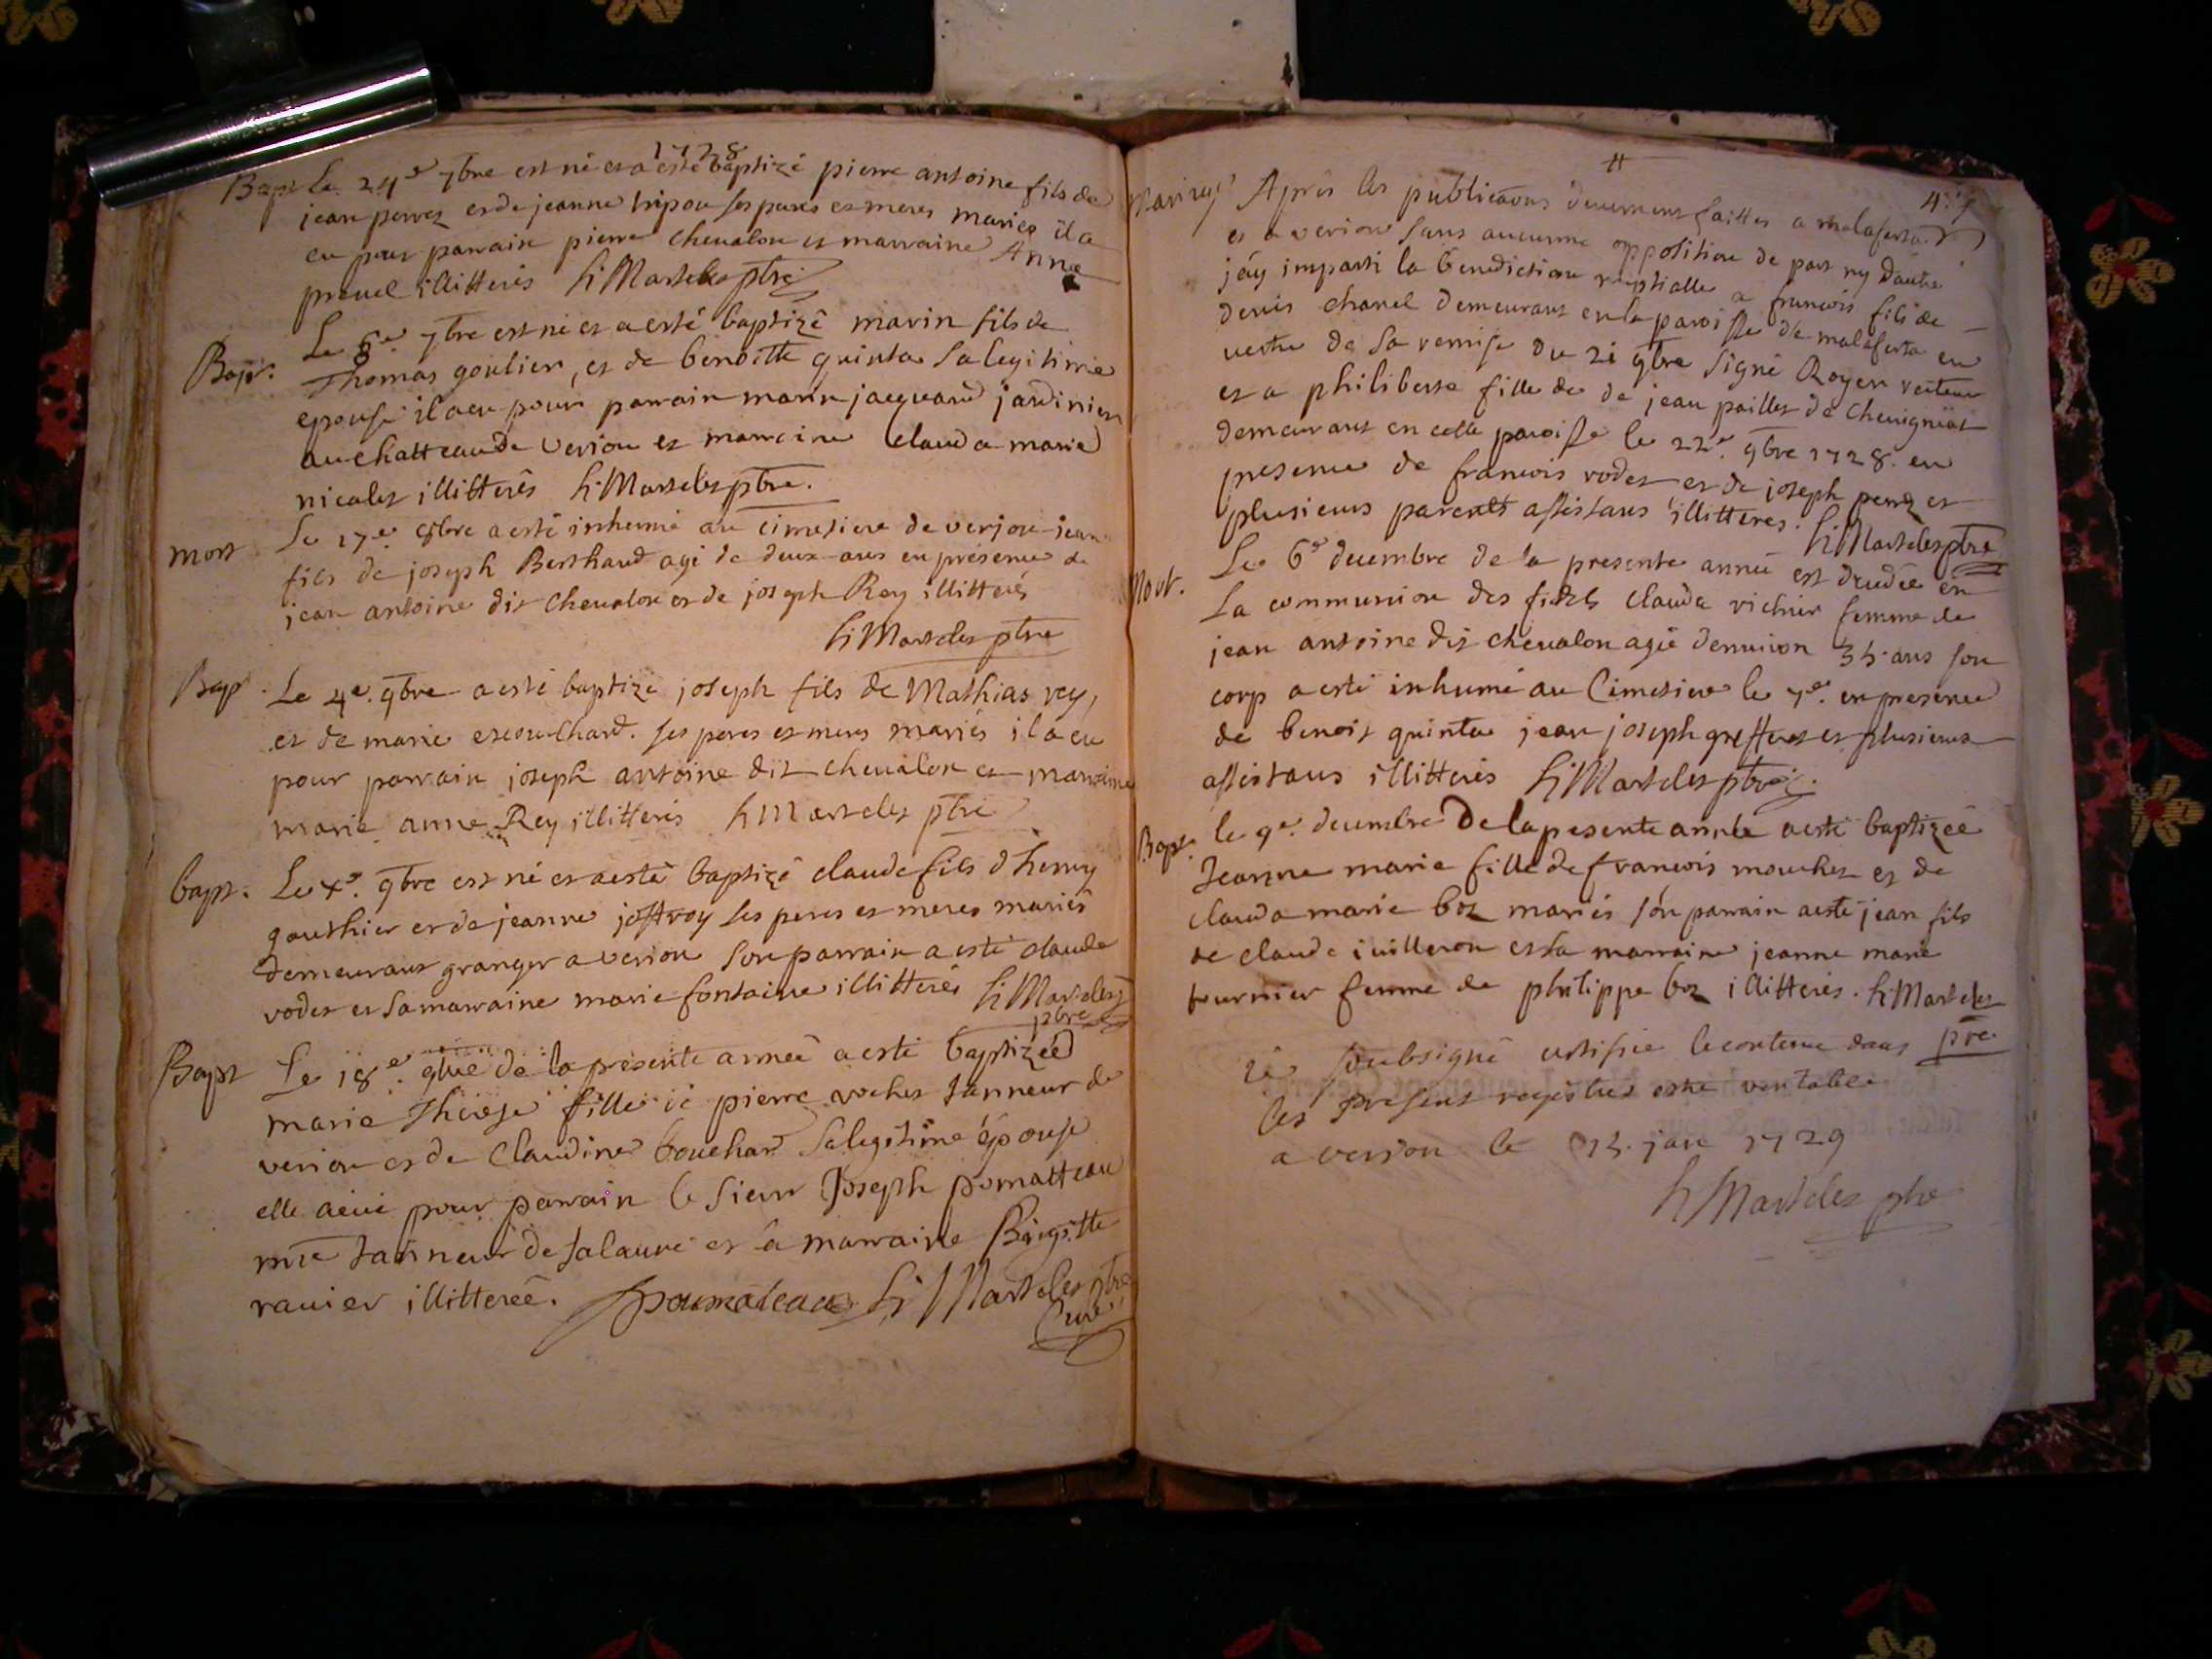 1728
Bapt Le 24e 7bre est né et a esté baptizé pierre antoine fils de
jean perrez et de jeanne tripou ses peres et meres mariés il a
eu pour parrain pierre chevalon et marraine Anne
prevel illitterés h: Martelet ptre
Bapt. Le 6e 7bre est né et a esté baptizé marin fils de
Thomas goulier, et de benoitte quinta sa legitime
epouse il a eu pour parrain marin jacquand jardinier
au chatteau de verjon et marraine Clauda marie
nicolet illitterés h: Martelet ptre.
mort Le 17e 8bre a esté inhumé au cimetiere de verjon jean
fils de joseph Berthaud agé de deux ans en présence de
jean antoine dit chevalon et de joseph Rey illitterés
h: Martelet ptre
Bap. Le 4e. 9bre a esté baptizé joseph fils de Mathias rey,
et de marie ses peres et meres mariés il a eu
pour parrain joseph antoine dit chevalon et marraine
marie anne Rey illitterés h Martelet ptre
bapt. Le xe. 9bre est né et a esté baptizé claude fils d'henry
gauthier et de jeanne joffroy ses peres et meres mariés
demeurant granger a verion son parrain a esté claude
vodet et sa maraine marie fontaine illitterés h: Martelet
ptre
Bapt Le 18e. 9bre de la présente année a esté baptizée
marie Therese fille de pierre rochet tanneur de
verion et de Claudine bouchard sa legitime épouse
elle a eüe pour parrain le sieur Joseph pomatteau
mre tanneur de Jalaure et a marraine Brigitte
ravier illitterée. poumateau h: Martelet ptre
Curé
Mariage Après les publications deuement faittes a malaferta
et a verion sans aucunne oppolition de part ny d'autre
j'ay imparti la benediction nuptialle a francois fils de
denis chanel demeurant en la paroisse de malaferta en
vertu de sa remise du 21 9bre signé Royer recteur
et a philiberte fille de de jean paillet de chevigniat
demeurant en cette paroisse le 22e. 9bre 1728. en
presence de francois vodet et de joseph perrez et
plusieurs parents assistans illitteres. h: Martelet ptre
Mort. Le 6e decembre de la presente année est decedée en
La communion des fidels Clauda vichier femme de
jean antoine dit chevalon agée d'environ 35 ans son
corp a esté inhumé au Cimetiere le 7e. en presence
de benoit quinta jean joseph greffet et plusieurs
assistans illitterés h: Martelet ptre.
Bapt. le 9e. decembre De la presente année a esté baptizée
Jeanne marie fille de francois mouchet et de
clauda marie boz mariés son parrain a esté jean fils
de claude iuilleron et sa marraine jeanne marie
fournier femme de philippe boz illitterés. h: Martelet
ptre
Je soubsigné certifie le contenu dans
les present registres estre veritable
a verjon le 13. jan 1729
h Martelet ptre